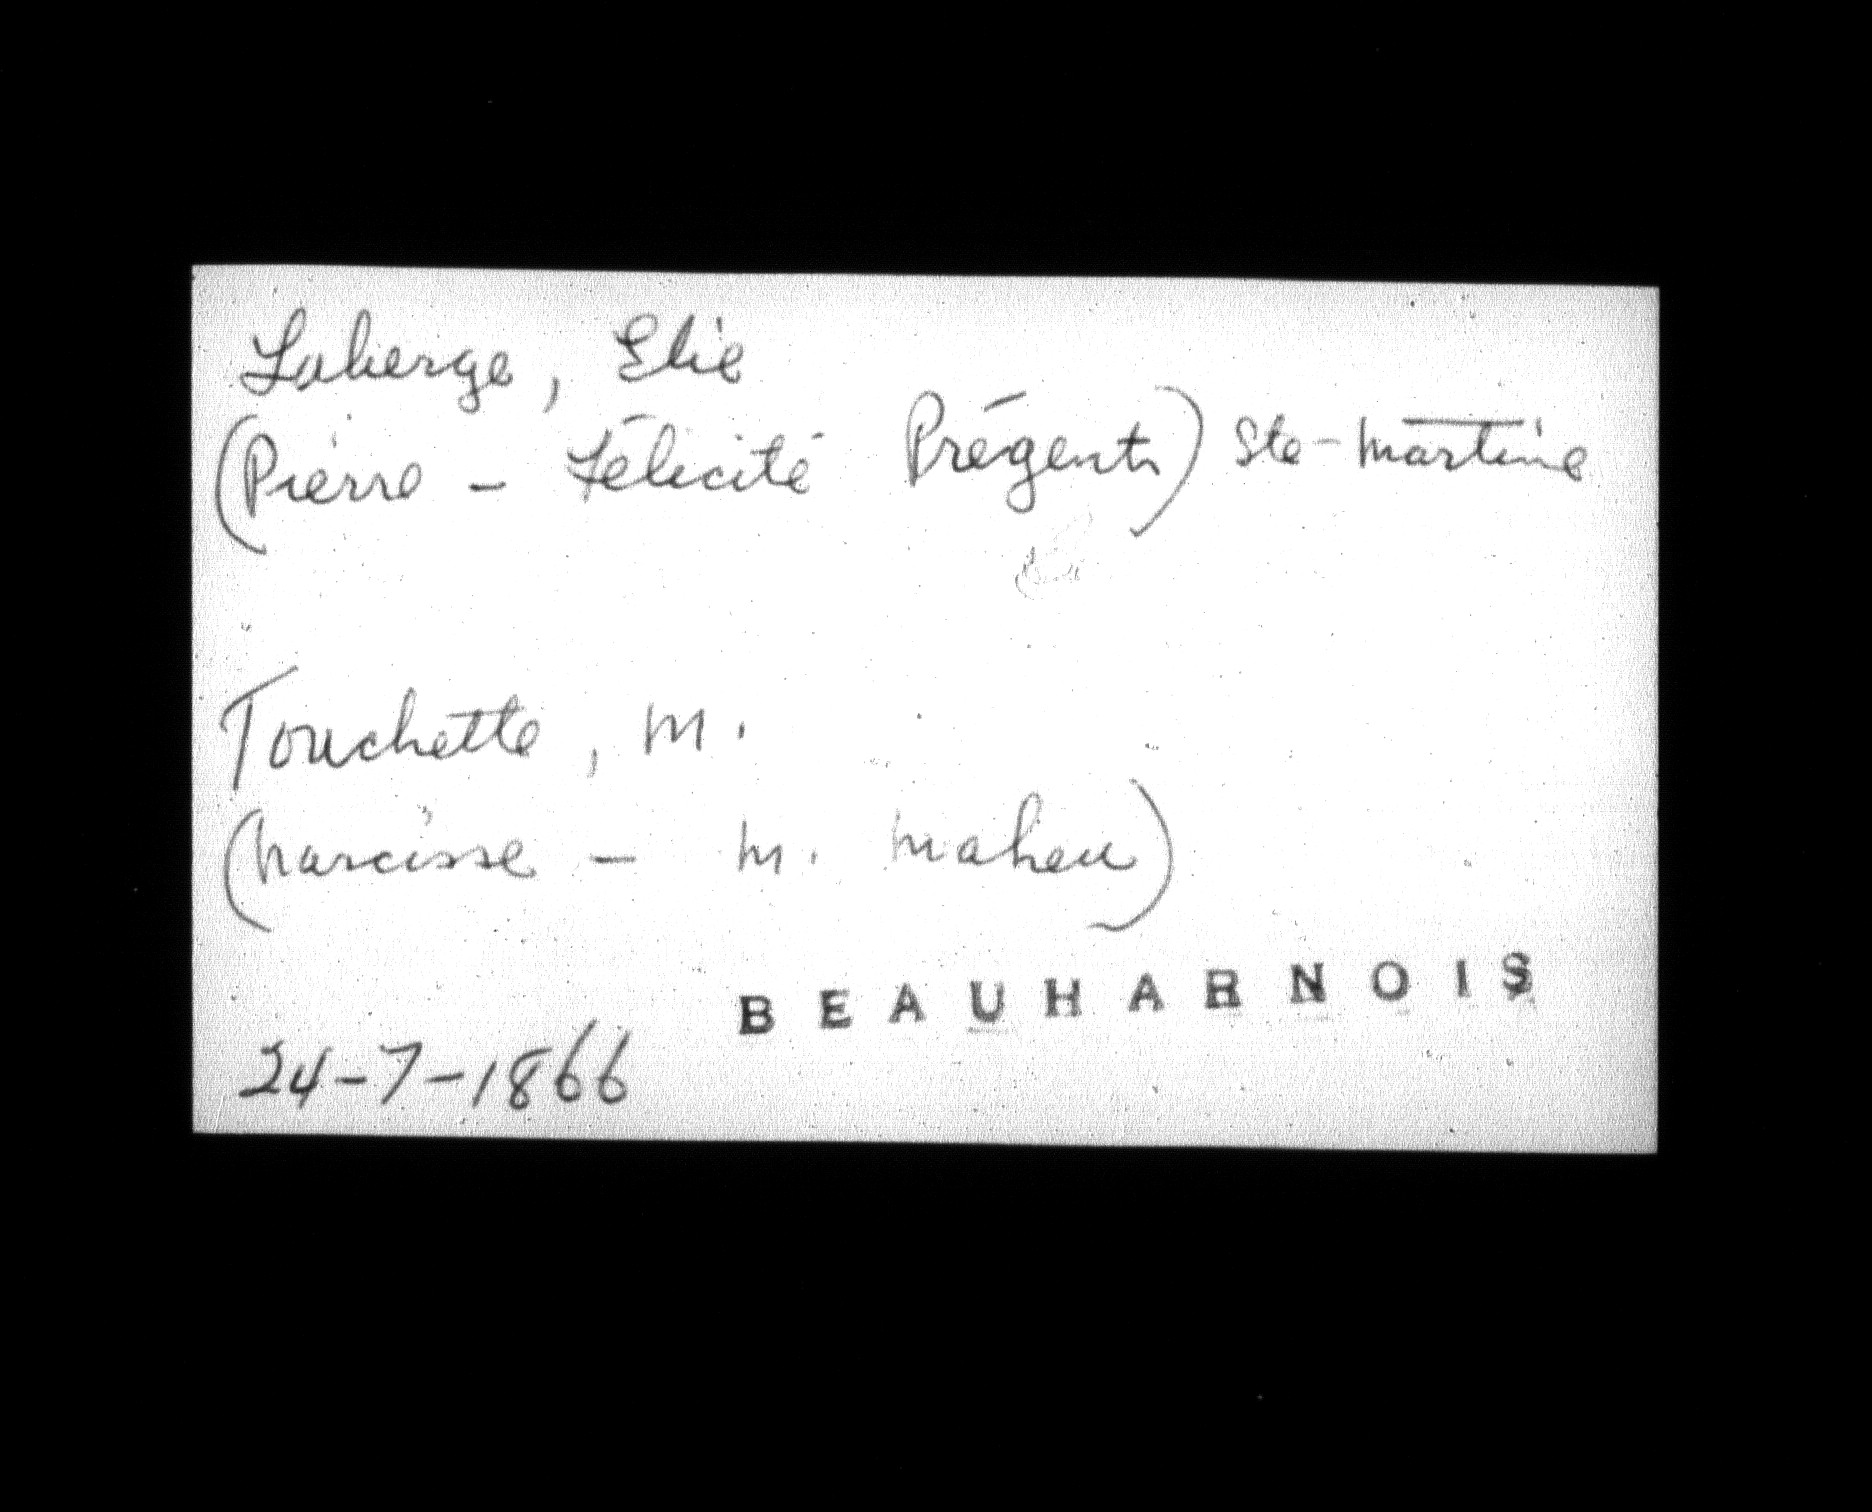 Laberge, Elie
(Pierre - Félicité Prégent) Ste-Martine
Touchette, M.
(Narcisse - M. Maheu)
BEAUHARNOIS
24-7-1866